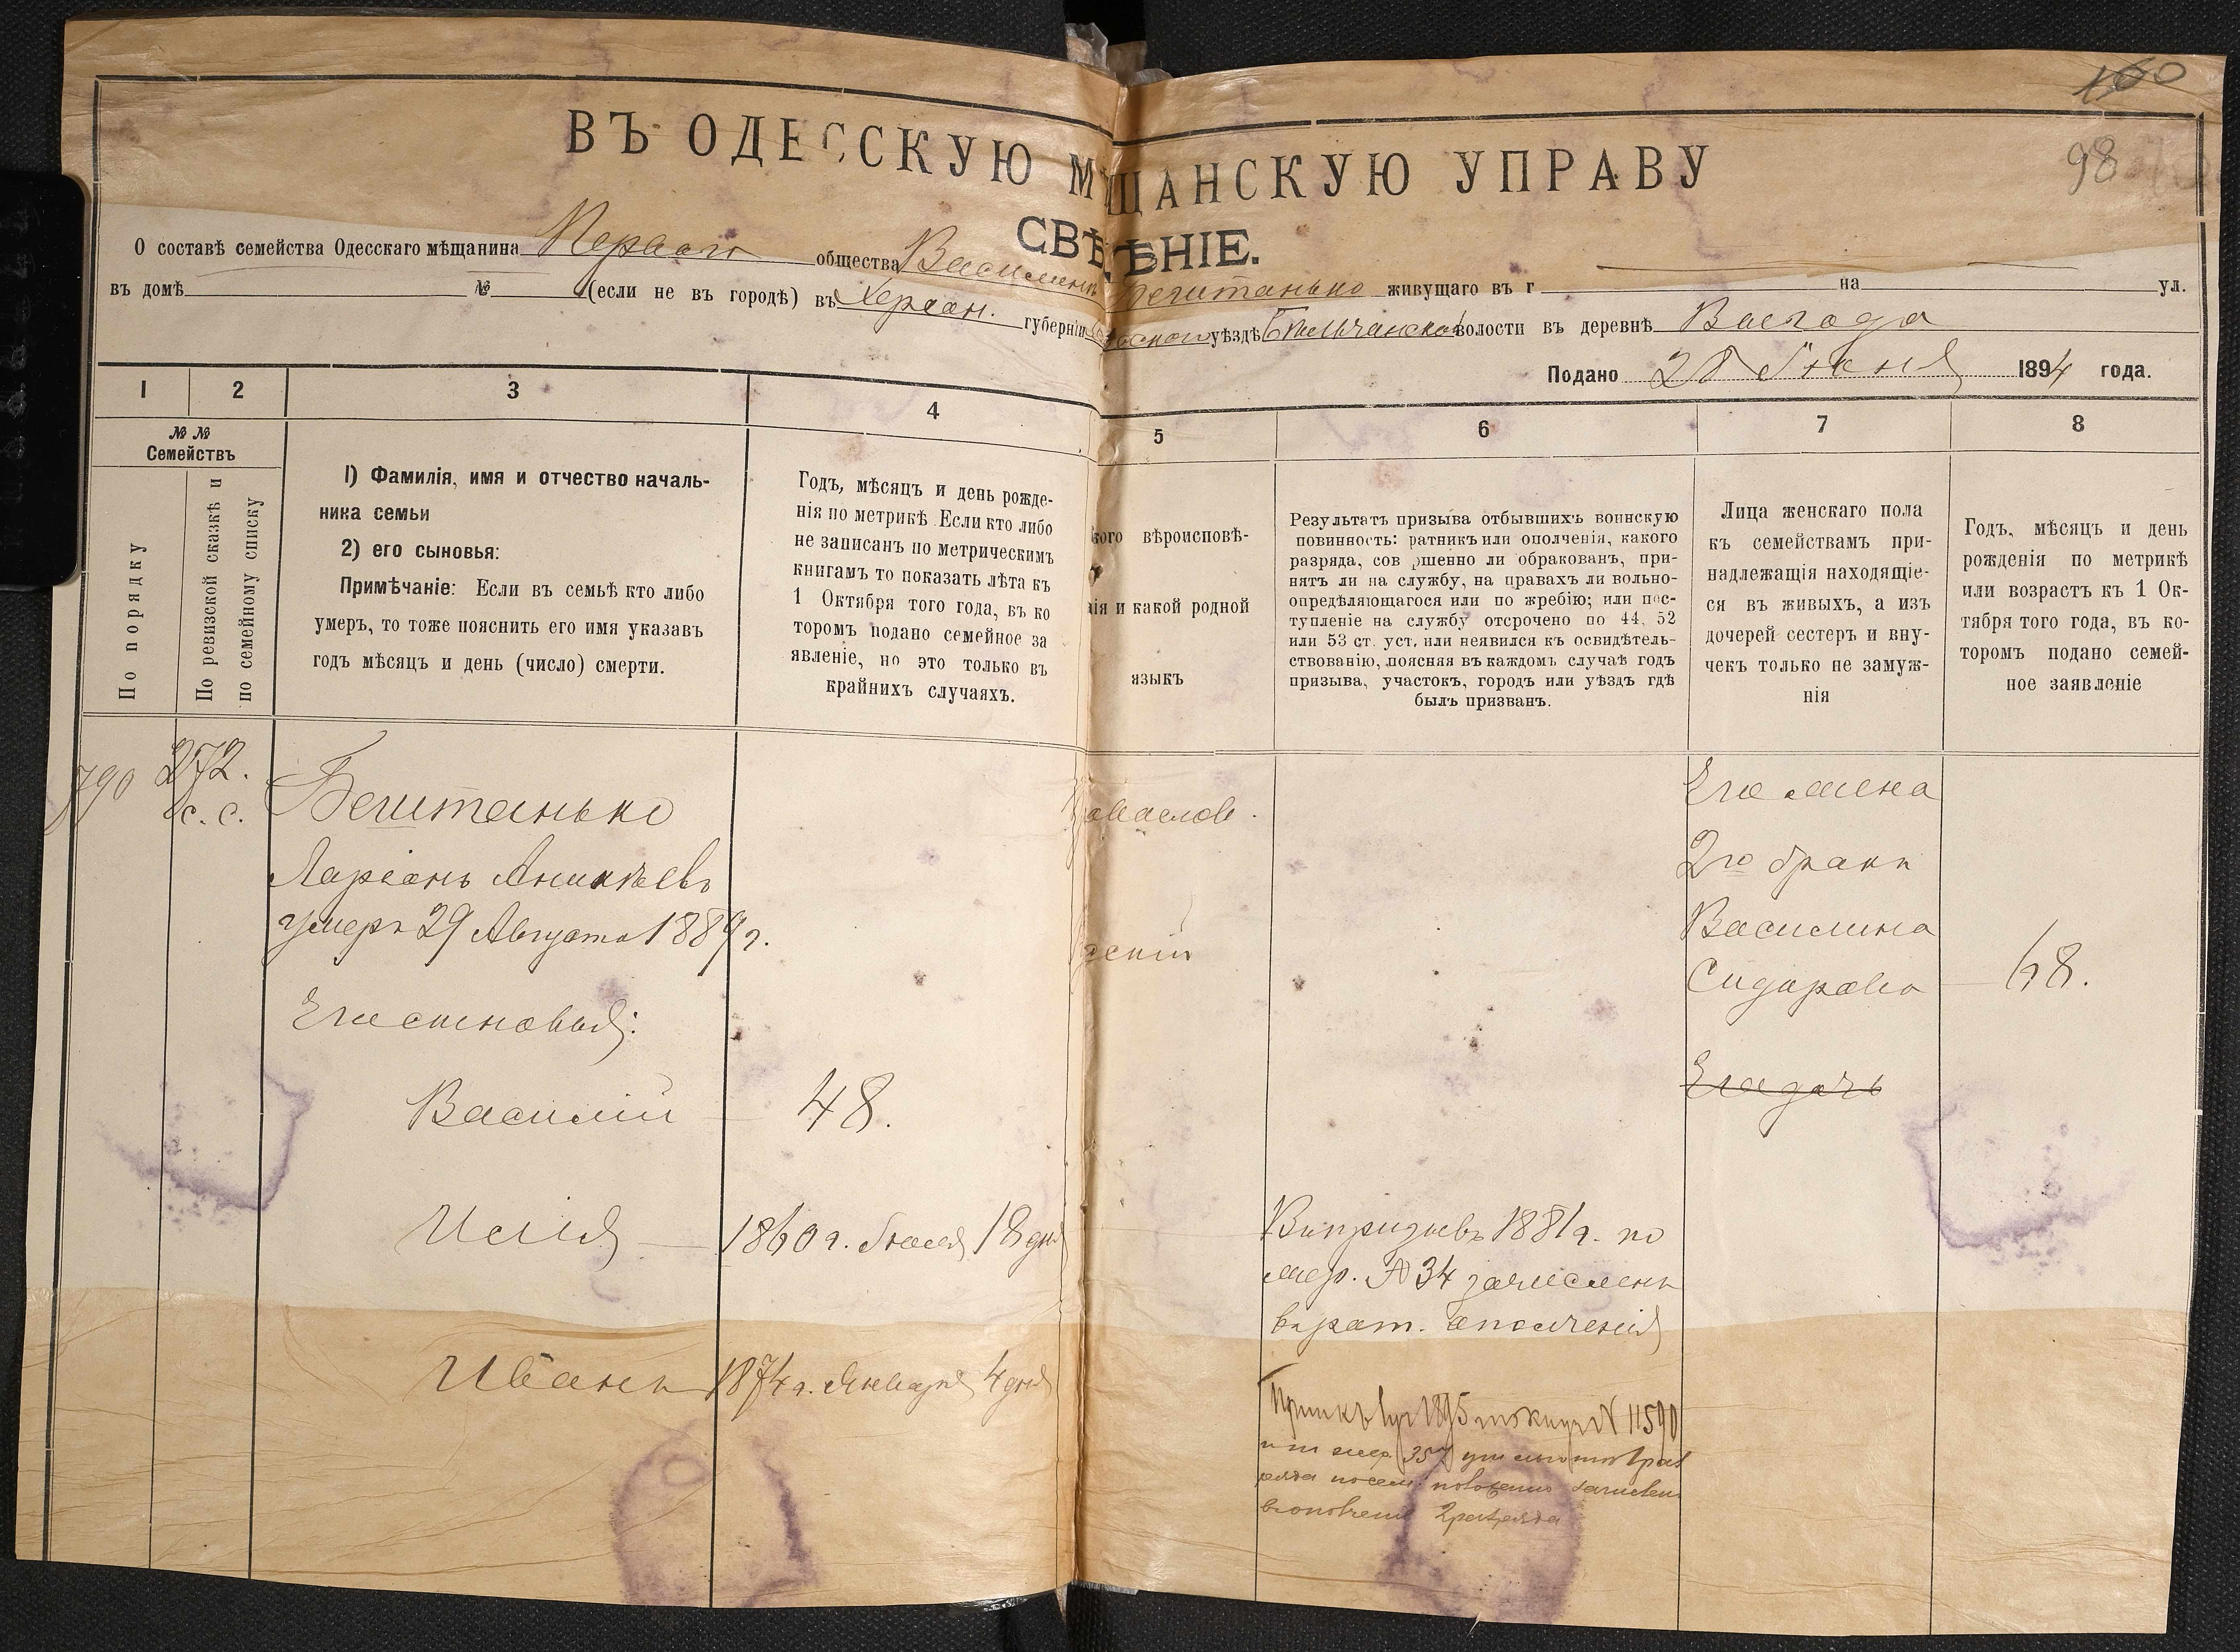 160
98
ВЪ ОДЕССКУЮ МѢЩАНСКУЮ УПРАВУ
СВѢДѢНІЕ.
О составѣ семейства Одесскаго мѣщанина Перваго общества живущаго въ г на ул.
въ домѣ № (если не въ городѣ) въ Херсон. губерніи уѣздѣ волости въ деревнѣ
Подано 28 1894 года.
1 2 3 4 5 6 7 8
№ № Семействъ
По порядку
По ревизской сказкѣ и
по семейному списку
1) Фамилія, имя и отчество началь-
ника семьи
2) его сыновья:
Примѣчаніе: Если въ семьѣ кто либо
умеръ, то тоже пояснить его имя указавъ
годъ мѣсяцъ и день (число) смерти.
Годъ, мѣсяцъ и день рожде-
нія по метрикѣ Если кто либо
не записанъ по метрическимъ
книгамъ то показать лѣта къ
1 Октября того года, въ ко
торомъ подано семейное за
явленіе, но это только въ
крайнихъ случаяхъ.
кого вѣроисповѣ-
нія и какой родной
языкъ
Результатъ призыва отбывшихъ воинскую
повинность: ратникъ или ополченія, какого
разряда, сов ршенно ли обракованъ, при-
нятъ ли на службу, на правахъ ли вольно-
опредѣляющагося или по жребію; или пос-
тупленіе на службу отсрочено по 44, 52
или 53 ст. уст, или неявился къ освидѣтель-
ствованію, поясняя въ каждомъ случаѣ годъ
призыва, участокъ, городъ или уѣздъ гдѣ
былъ призванъ.
Лица женскаго пола
къ семействамъ при-
надлежащія находящіе-
ся въ живыхъ, а изъ
дочерей сестеръ и вну-
чекъ только не замуж-
нія
Годъ, мѣсяцъ и день
рожденія по метрикѣ
или возрастъ къ 1 Ок-
тября того года, въ ко-
торомъ подано семей-
ное заявленіе
790 272.
с. с.
Ларіонъ
умеръ 29 Августа 1889 г.
Его сыновья:
Василій 48.
Илія 1860 г. 18 дня
Иванъ 1874 г. Января 4 дня
Въ призывъ 1881 г. по
жер. № 34 зачисленъ
въ рат. ополченія
1895 № 11590
357
2 разряда
Его жена
2го брака
Василина
Сидорова 68.
Его дочь